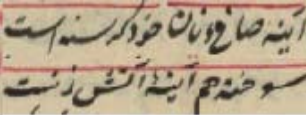 آینه صاف و نان خود گرسنه است
سوخته هم آینه آتش زنست